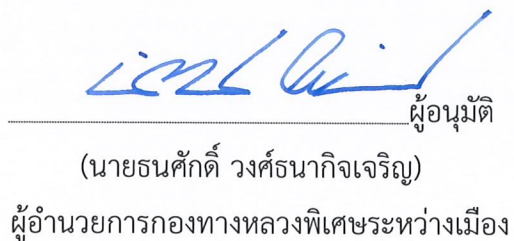 ผู้อนุมัติ
(นายธนศักดิ์ วงศ์ธนากิจเจริญ)
ผู้อำนวยการกองทางหลวงพิเศษระหว่างเมือง